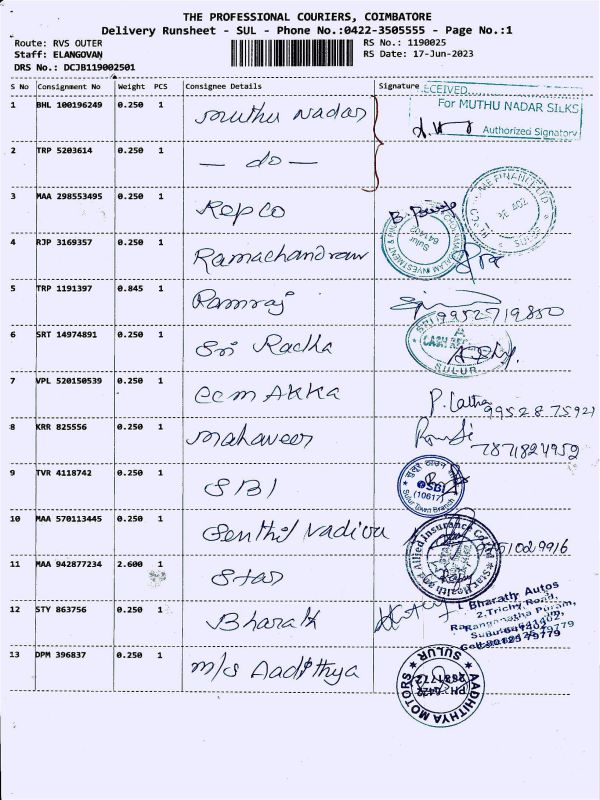 THE PROFESSIONAL COURIERS, COIMBATORE
Delivery Runsheet - SUL - Phone No.:0422-3505555 - Page No.:1
Route: RVS OUTER
Staff: ELANGOVAN
DRS No.: DCJB119002501
RS No.: 1190025
RS Date: 17-Jun-2023
S No Consignment No Weight PCS Consignee Details Signature
RECEIVED
For MUTHU NADAR SILKS
Authorized Signatory
1 BHL 100196249 0.250 1 muthu Nadar
2 TRP 5203614 0.250 1 — do —
3 MAA 298553495 0.250 1 Repco
4 RJP 3169357 0.250 1 Ramachandran
5 TRP 1191397 0.845 1 Ramraj
9952719850
6 SRT 14974891 0.250 1 Sri Radha
SULUR
7 VPL 520150539 0.250 1 ccm AKKA P. Latha 9952875921
8 KRR 825556 0.250 1 mahaveer 7871824952
9 TVR 4118742 0.250 1 SBI
SBI
(10617)
Sulur Town Branch
10 MAA 570113445 0.250 1 Senthil vadiva
11 MAA 942877234 2.600 1 Star
Star Health and Allied Insurance Co Ltd
12 STY 863756 0.250 1 Bharath
Bharath Autos
2,Trichy Road,
Ranganatha Puram,
13 DPM 396837 0.250 1 M/s Aadithya
AADHITHYA MOTORS
SULUR